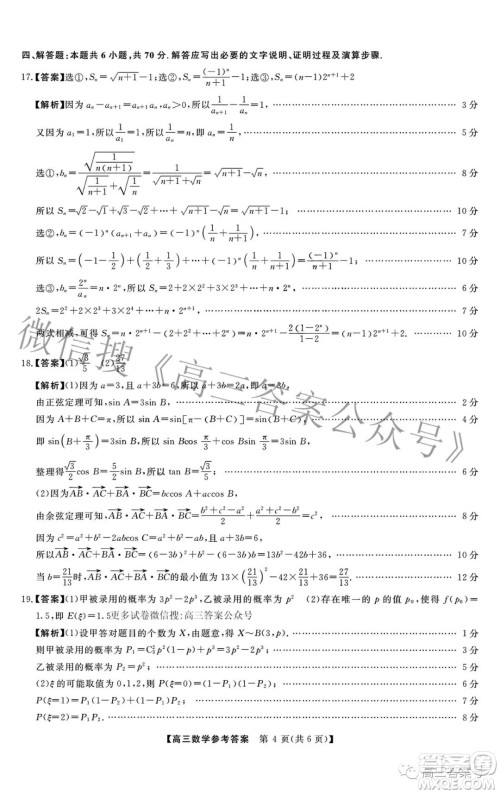 四、解答题:本题共6小题,共70分.解答应写出必要的文字说明、证明过程及演算步骤.
17.【答案】选①,Sₙ=√(n+1)-1;选②,Sₙ=(-1)ⁿ/(n+1)-1;选③,Sₙ=(n-1)·2ⁿ⁺¹+2
【解析】因为aₙ-aₙ₊₁=aₙaₙ₊₁,aₙ>0,所以1/aₙ₊₁-1/aₙ=1, 3分
又因为a₁=1,所以1/a₁=1,所以1/aₙ=n,所以aₙ=1/n. 5分
选①,bₙ=√(1/(n(n+1)))/(√(1/(n+1))+√(1/n))=1/(√(n+1)+√n)=√(n+1)-√n, 8分
所以Sₙ=√2-√1+√3-√2+…+√(n+1)-√n=√(n+1)-1. 10分
选②,bₙ=(-1)ⁿ(aₙ₊₁+aₙ)=(-1)ⁿ(1/n+1/(n+1)), 7分
所以Sₙ=(-1-1/2)+(1/2+1/3)+…+(-1)ⁿ(1/n+1/(n+1))=(-1)ⁿ/(n+1)-1. 10分
选③,bₙ=2ⁿ/aₙ=n·2ⁿ,所以Sₙ=2+2×2²+3×2³+…+n·2ⁿ, 6分
2Sₙ=2²+2×2³+3×2⁴+…+n·2ⁿ⁺¹, 7分
两式相减,可得Sₙ=n·2ⁿ⁺¹-(2+2²+…+2ⁿ)=n·2ⁿ⁺¹-2(1-2ⁿ)/(1-2)=(n-1)2ⁿ⁺¹+2. 10分
18.【答案】(1)√3/5 (2)27/13
【解析】(1)因为a=3,且a+3b=6,所以a+3b=2a,即3b=a.
由正弦定理可知,sin A=3sin B, 2分
因为A+B+C=π,所以sin A=sin[π-(B+C)]=sin(B+C),
即sin(B+π/3)=3sin B,所以sin Bcos π/3+cos Bsin π/3=3sin B, 4分
整理得√3/2 cos B=5/2 sin B,所以tan B=√3/5; 6分
(2)因为AB·AC+BA·BC=bccos A+accos B, 7分
由余弦定理可知,AB·AC+BA·BC=(b²+c²-a²)/2+(a²+c²-b²)/2=c², 9分
所以AB·AC+BA·BC=(6-3b)²+b²-(6-3b)b=13b²-42b+36, 11分
当b=21/13时,AB·AC+BA·BC的最小值为13×(21/13)²-42×21/13+36=27/13. 12分
19.【答案】(1)甲被录用的概率为3p²-2p³,乙被录用的概率为p² (2)存在唯一的p的值p₀,使得E(ξ)=
1.5,即E(ξ)=1.5更多试卷微信搜:高三答案公众号
【解析】(1)设甲答对题目的个数为X,由题意得,X~B(3,p), 1分
则甲被录用的概率为P₁=C₃²p²(1-p)+p³=3p²-2p³, 3分
乙被录用的概率为P₂=p². 5分
(2)ξ的可能取值为0,1,2,则P(ξ=0)=(1-P₁)(1-P₂), 6分
P(ξ=1)=P₁(1-P₂)+(1-P₁)P₂,P(ξ=2)=P₁P₂, 7分
【高三数学参考答案 第4页(共6页)】
微信搜《高三答案公众号》